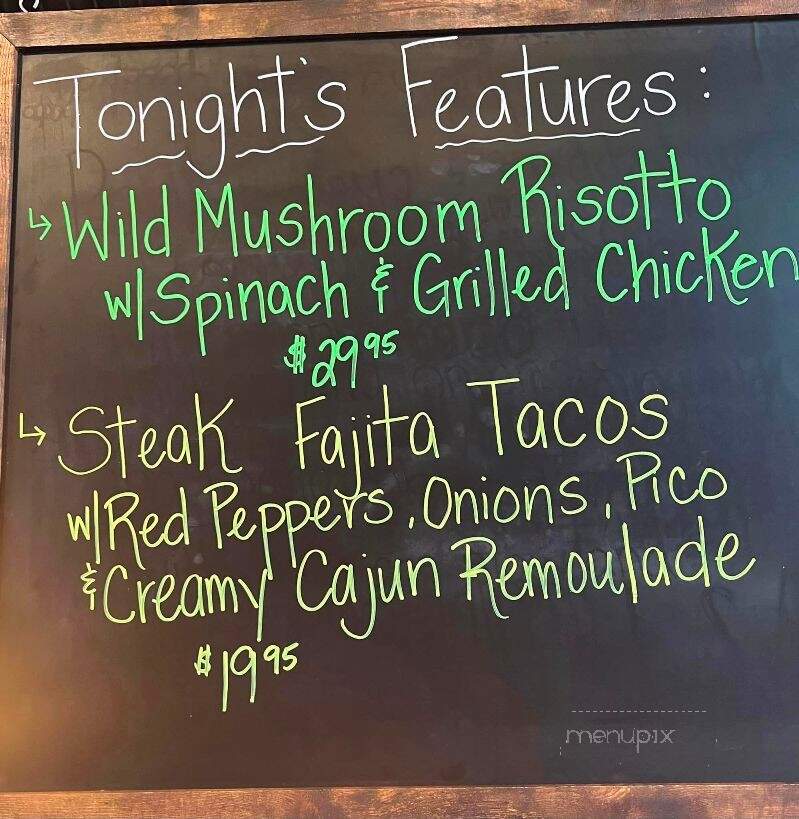 Tonight's Features:
↳ Wild Mushroom Risotto
w/ Spinach & Grilled Chicken
$29.95
↳ Steak Fajita Tacos
w/ Red Peppers, Onions, Pico
& Creamy Cajun Remoulade
$19.95
menupix